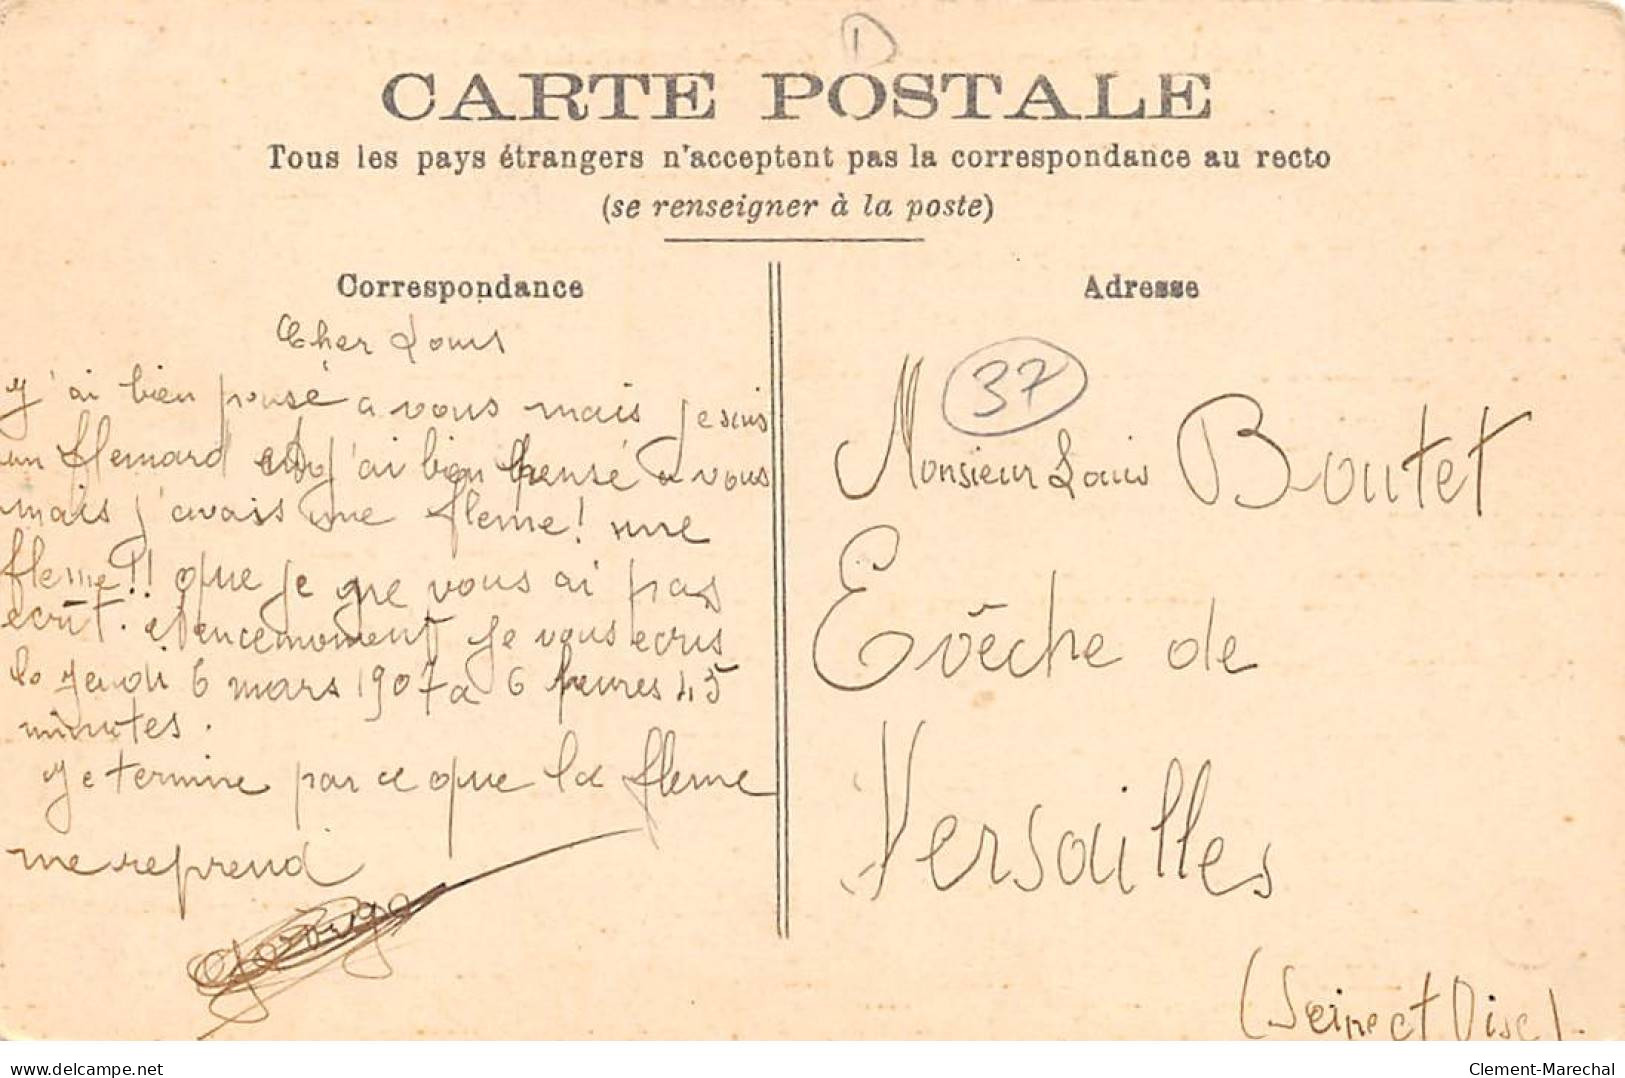 CARTE POSTALE
Tous les pays étrangers n'acceptent pas la correspondance au recto
(se renseigner à la poste)
Correspondance
Adresse
Cher Louis
J'ai bien pensé a vous mais je suis
un flemard j'ai bien pensé a vous
mais j'avais une fleme! une
fleme!! que je ne vous ai pas
ecrit. et encemoment je vous ecris
le jeudi 6 mars 1907 a 6 heures 45
minutes.
Je termine par ce que la fleme
me reprend
37
Monsieur Louis Boutet
Evêche de
Versailles
(Seine et Oise).
delcampe.net
Clement-Marechal